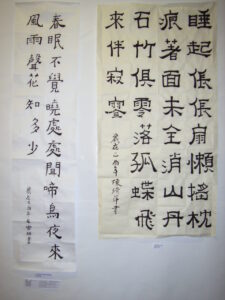 睡起倀倀扇懶搖枕
痕著面未全消山丹
石竹俱零落孤蝶飛
來伴寂寥
歲在乙酉年陳書
春眠不覺曉處處聞啼鳥夜來
風雨聲花知多少